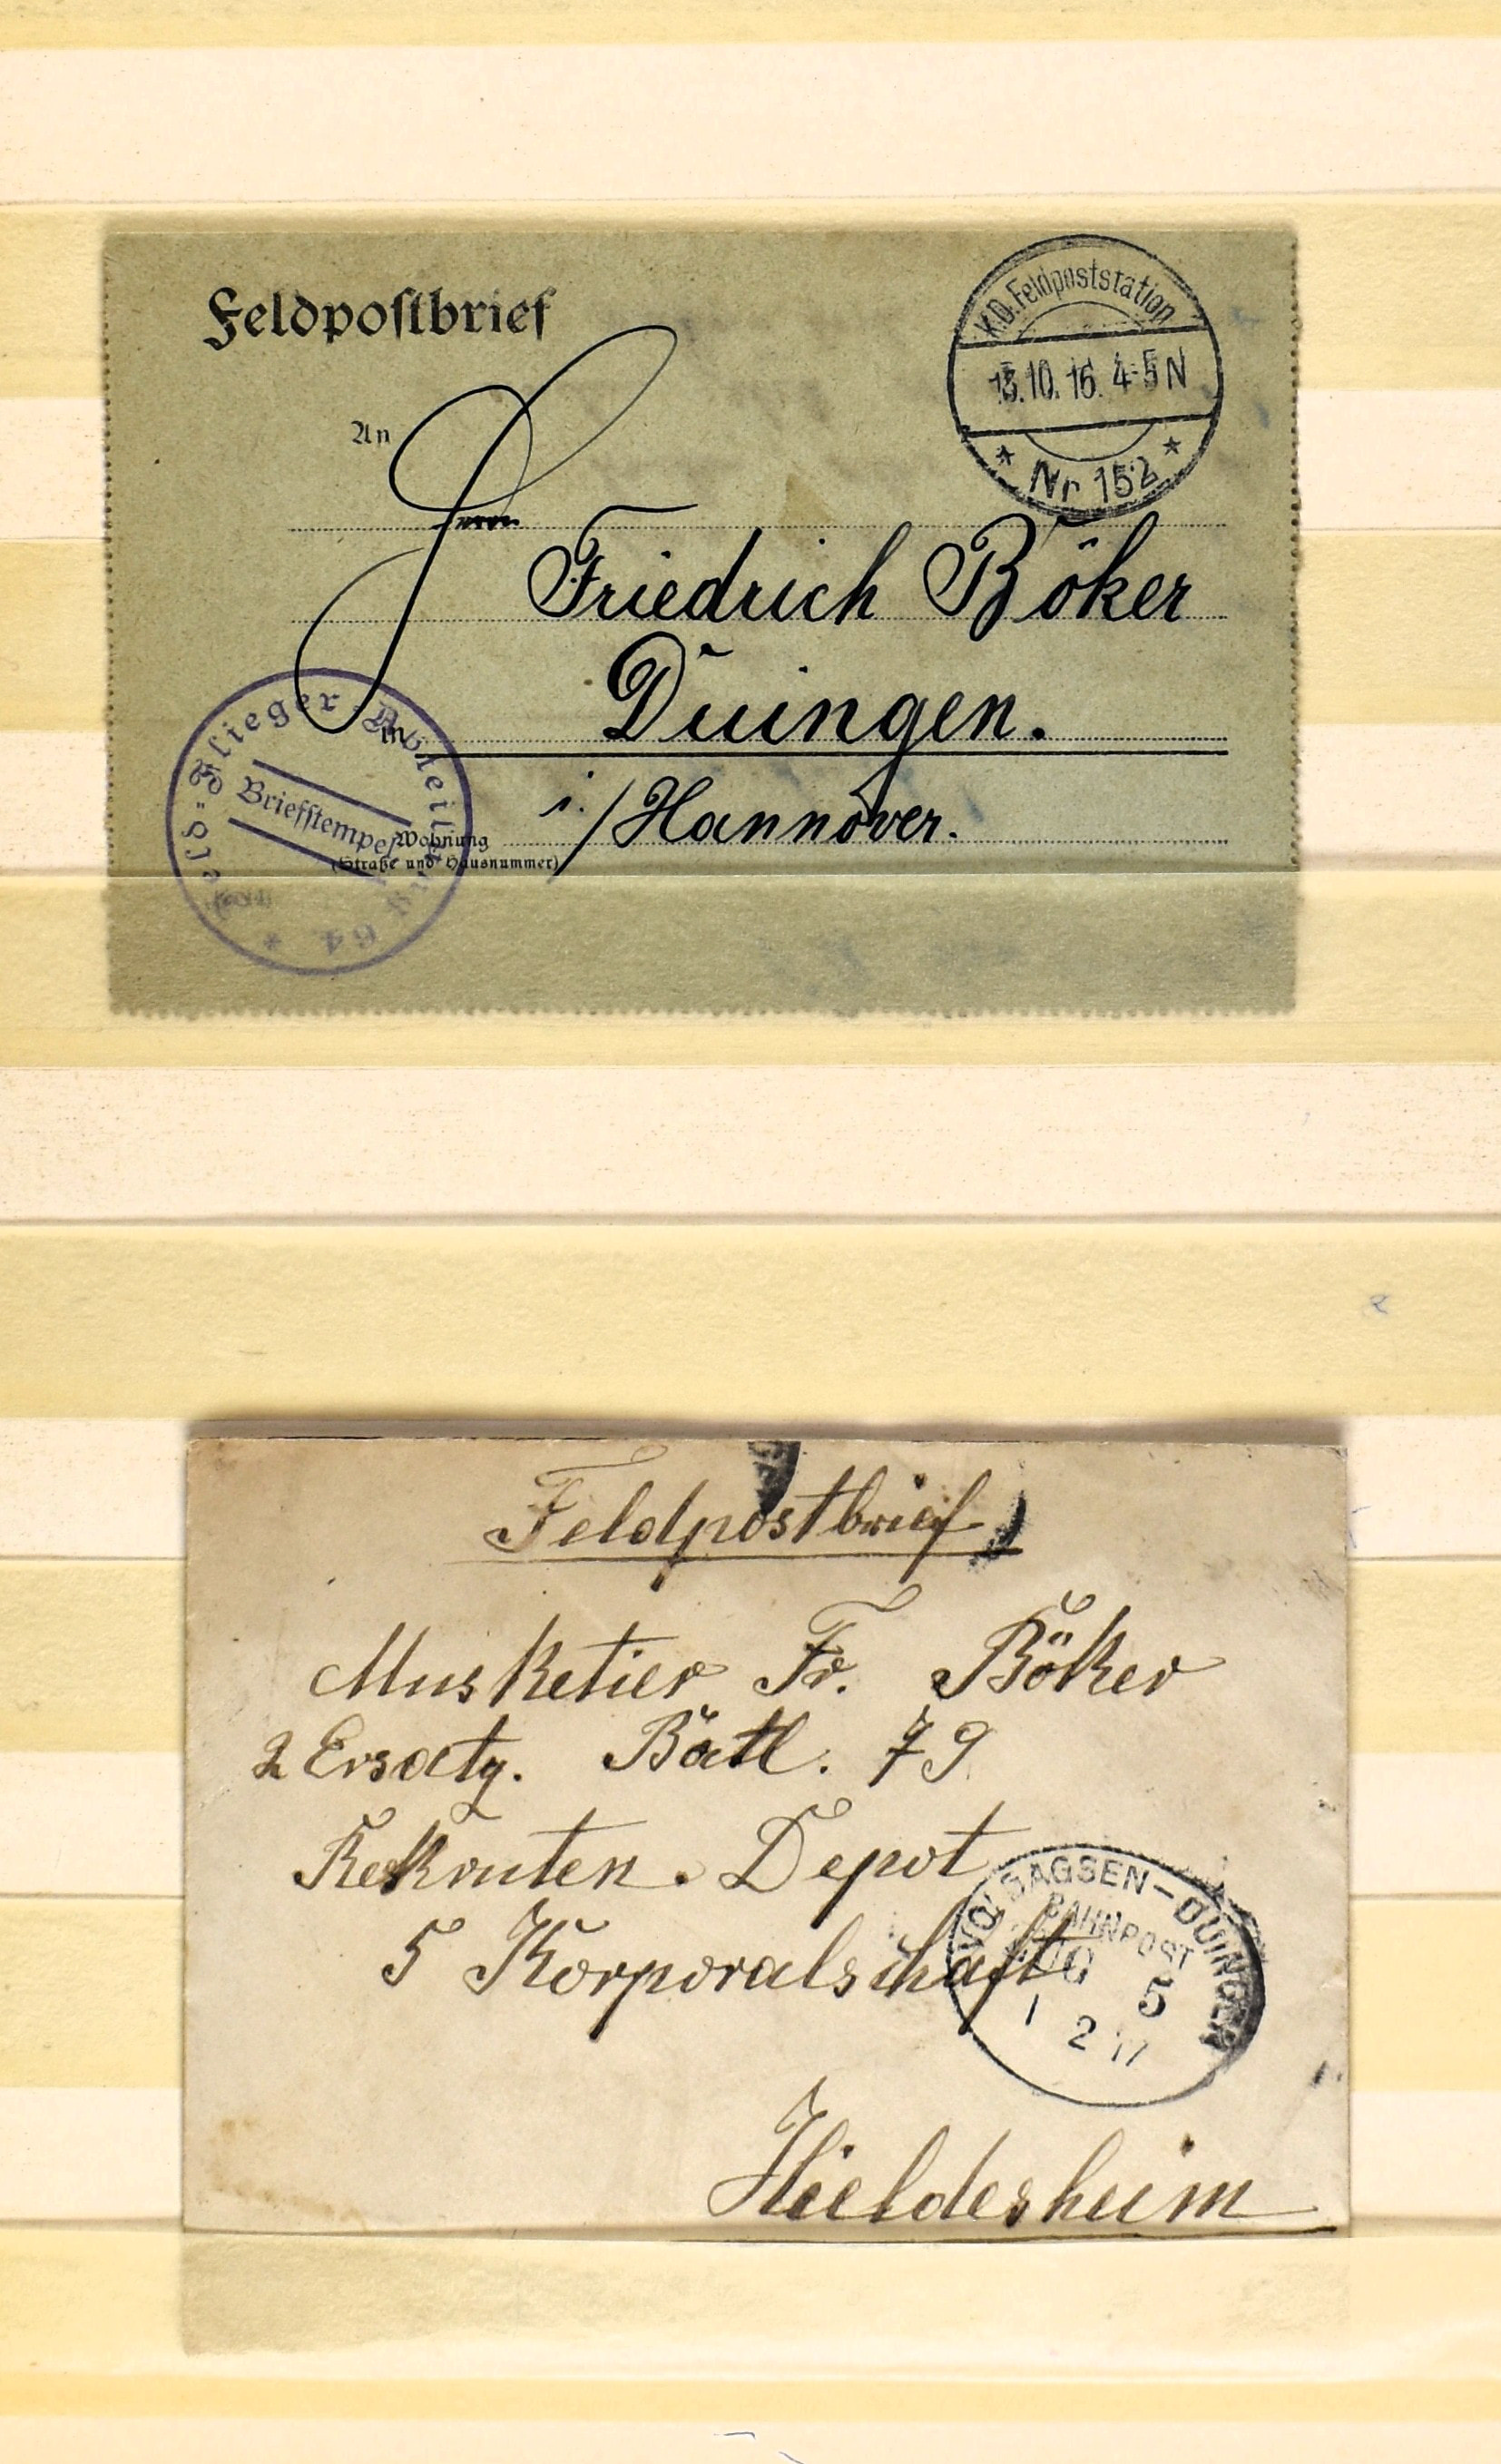 Feldpostbrief
K.D. Feldpoststation
13.10.16. 4-5 N
* Nr 152 *
An
Herrn
Friedrich Böker
in
Duingen.
i./Hannover.
Wohnung
(Straße und Hausnummer)
Feld-Flieger-Abteilung 64 *
Briefstempel
Feldpostbrief
Musketier Fr. Böker
2 Ersatz. Batl. 79
Rekruten. Depot
5 Korporalschaft
VOLDAGSEN-DUINGEN
BAHNPOST
ZUG 5
1 2 17
Hieldesheim